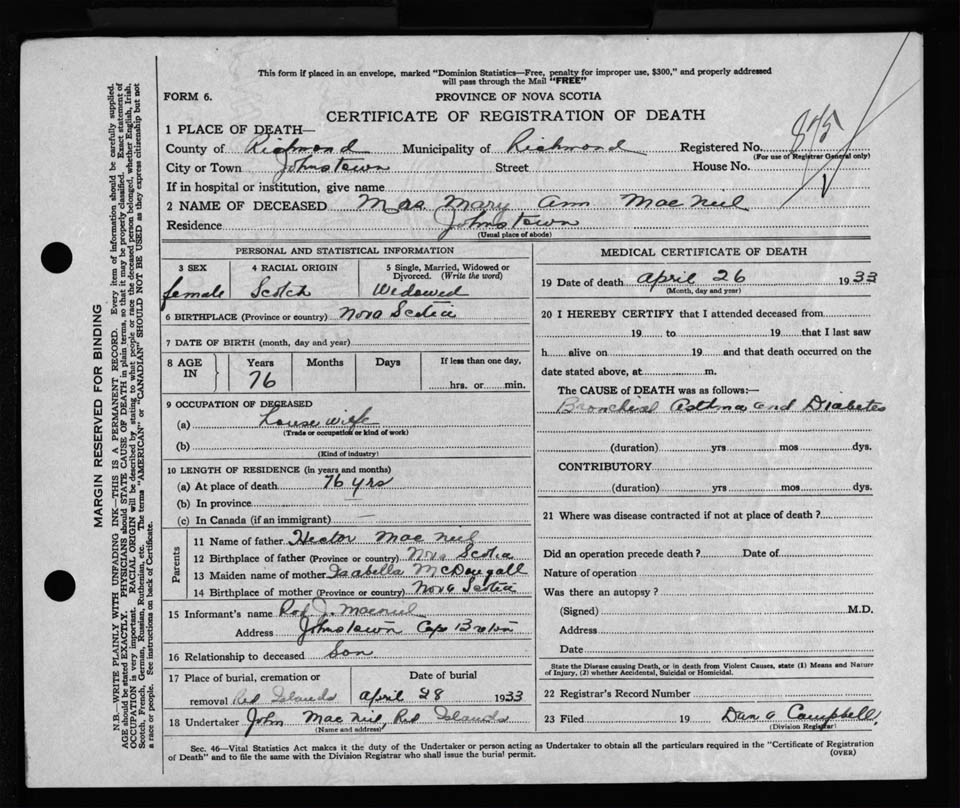 This form if placed in an envelope, marked "Dominion Statistics—Free, penalty for improper use, $300," and properly addressed
will pass through the Mail "FREE"
FORM 6. PROVINCE OF NOVA SCOTIA
CERTIFICATE OF REGISTRATION OF DEATH
875
1 PLACE OF DEATH—
County of Richmond Municipality of Richmond Registered No.
(For use of Registrar General only)
City or Town Johnstown Street House No.
If in hospital or institution, give name
2 NAME OF DECEASED Mrs Mary Ann MacNeil
Residence Johnstown
(Usual place of abode)
PERSONAL AND STATISTICAL INFORMATION
3 SEX 4 RACIAL ORIGIN 5 Single, Married, Widowed or
Divorced. (Write the word)
female Scotch Widowed
6 BIRTHPLACE (Province or country) Nova Scotia
7 DATE OF BIRTH (month, day and year)
8 AGE IN Years Months Days If less than one day,
76 hrs. or min.
9 OCCUPATION OF DECEASED
(a) House wife
(Trade or occupation or kind of work)
(b)
(Kind of industry)
10 LENGTH OF RESIDENCE (in years and months)
(a) At place of death 76 yrs
(b) In province
(c) In Canada (if an immigrant)
Parents
11 Name of father Hector Mac Neil
12 Birthplace of father (Province or country) Nova Scotia
13 Maiden name of mother Isabella McDougall
14 Birthplace of mother (Province or country) Nova Scotia
15 Informant's name Rod J. Macneil
Address Johnstown Cape Breton
16 Relationship to deceased Son
17 Place of burial, cremation or Date of burial
removal Red Islands April 28 1933
18 Undertaker John MacNeil, Red Islands
(Name and address)
MEDICAL CERTIFICATE OF DEATH
19 Date of death April 26 1933
(Month, day and year)
20 I HEREBY CERTIFY that I attended deceased from
19 to 19 that I last saw
h alive on 19 and that death occurred on the
date stated above, at m.
The CAUSE of DEATH was as follows:—
Bronchial Asthma and Diabetes
(duration) yrs mos dys.
CONTRIBUTORY
(duration) yrs mos dys.
21 Where was disease contracted if not at place of death?
Did an operation precede death? Date of
Nature of operation
Was there an autopsy?
(Signed) M.D.
Address
Date
State the Disease causing Death, or in death from Violent Causes, state (1) Means and Nature
of Injury, (2) whether Accidental, Suicidal or Homicidal.
22 Registrar's Record Number
23 Filed 19 Dan A Campbell,
(Division Registrar)
Sec. 46—Vital Statistics Act makes it the duty of the Undertaker or person acting as Undertaker to obtain all the particulars required in the "Certificate of Registration
of Death" and to file the same with the Division Registrar who shall issue the burial permit. (OVER)
MARGIN RESERVED FOR BINDING
N.B.—WRITE PLAINLY WITH UNFADING INK—THIS IS A PERMANENT RECORD. Every item of information should be carefully supplied.
AGE should be stated EXACTLY. PHYSICIANS should STATE CAUSE OF DEATH in plain terms, so that it may be properly classified. Exact statement of
OCCUPATION is very important. RACIAL ORIGIN will be described by stating to what people or race the deceased person belonged, whether English, Irish,
Scotch, French, German, Russian, Ruthenian, etc. The terms "AMERICAN" or "CANADIAN" SHOULD NOT BE USED as they express citizenship but not
a race or people. See instructions on back of Certificate.